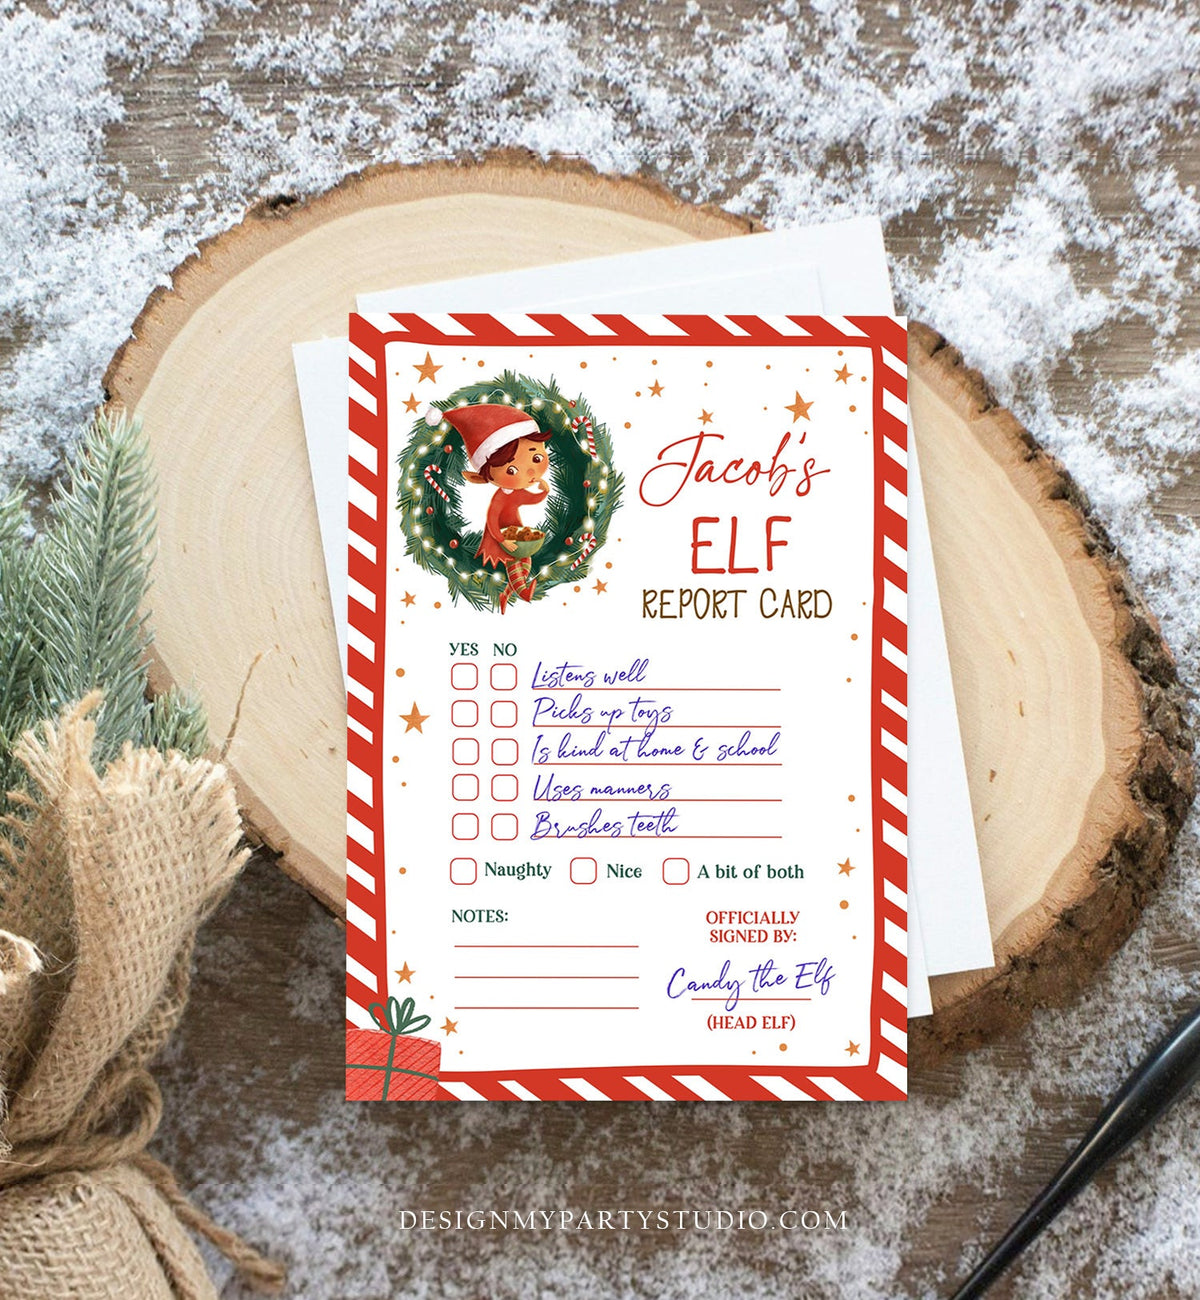 Jacob's
ELF
REPORT CARD
YES NO
Listens well
Picks up toys
Is kind at home & school
Uses manners
Brushes teeth
Naughty Nice A bit of both
NOTES:
OFFICIALLY
SIGNED BY:
Candy the Elf
(HEAD ELF)
DESIGNMYPARTYSTUDIO.COM